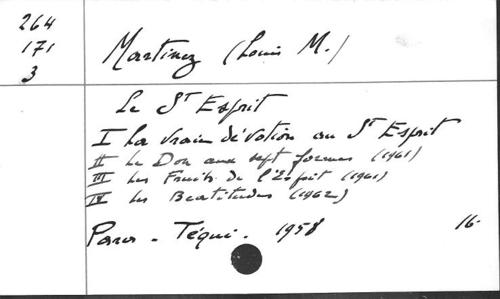 264
171
3
Martinez (Louis M.)
Le St Esprit
I La vraie dévotion au St Esprit
II Le Don aux sept formes (1961)
III Les Fruits de l'Esprit (1961)
IV Les Beatitudes (1962)
Paris - Téqui - 1958 16-